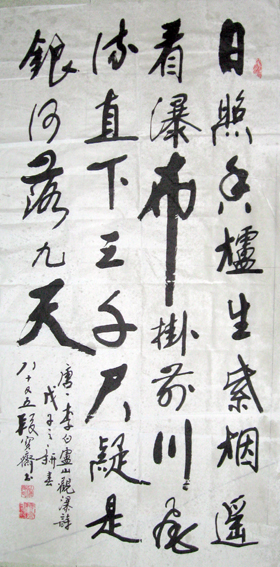 日照香爐生紫烟遥
看瀑布掛前川飛
流直下三千尺疑是
銀河落九天
唐、李白廬山觀瀑詩
戊子之新春
八十又五